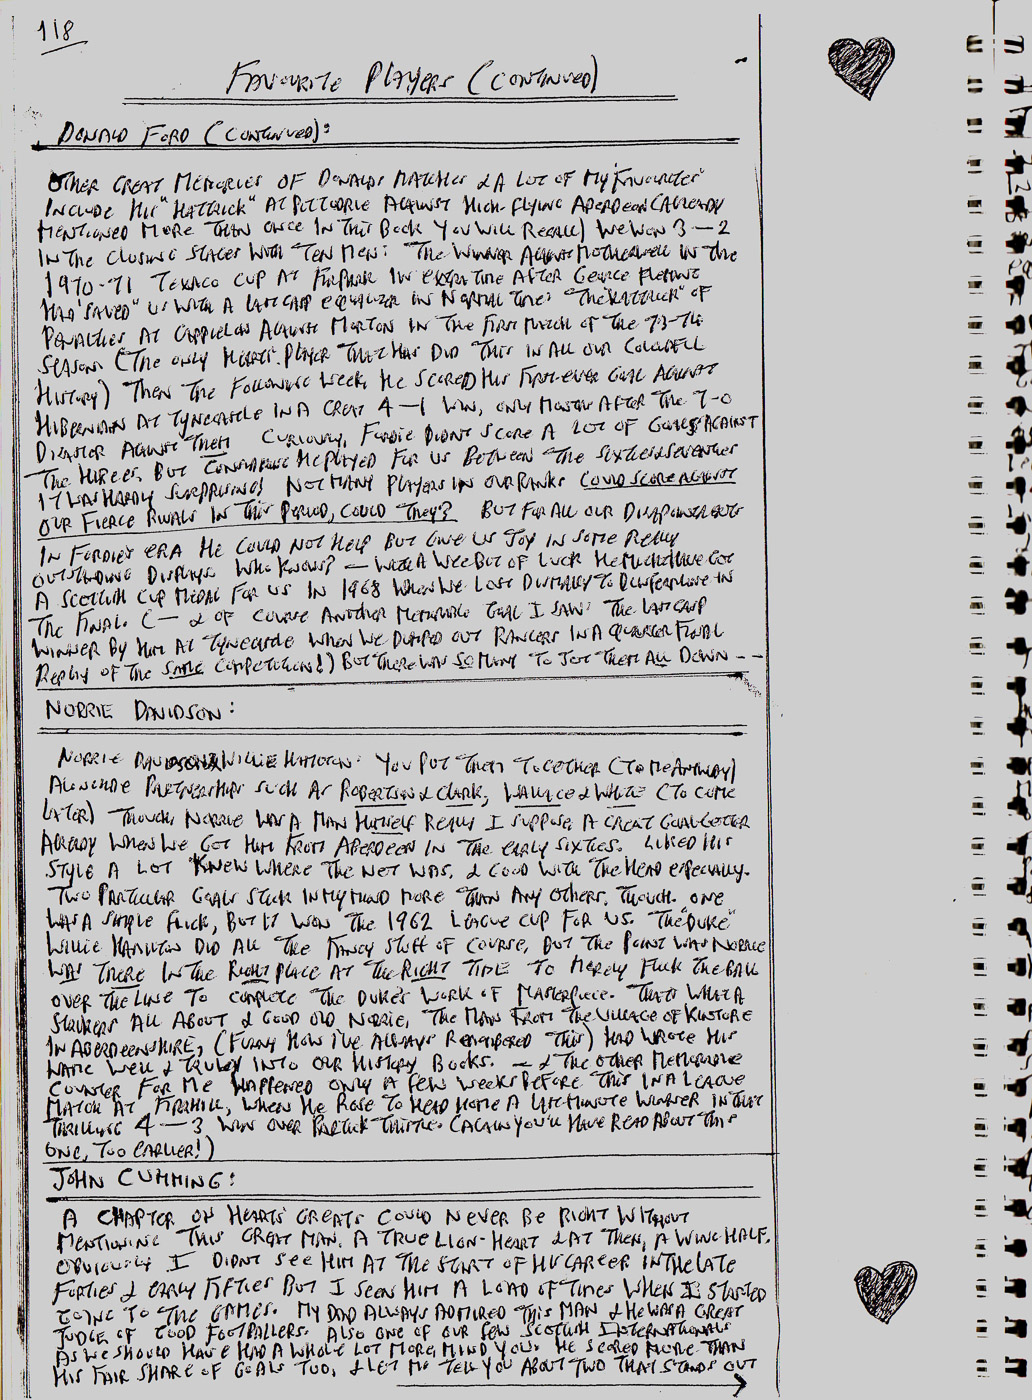 118
FAVOURITE PLAYERS (CONTINUED)
DONALD FORD (CONTINUED):
OTHER GREAT MEMORIES OF DONALDS MATCHES & A LOT OF MY "FAVOURITES"
INCLUDE HIS "HATTRICK" AT PITTODRIE AGAINST HIGH-FLYING ABERDEEN (ALREADY
MENTIONED MORE THAN ONCE IN THIS BOOK YOU WILL RECALL) WE WON 3-2
IN THE CLOSING STAGES WITH TEN MEN: THE WINNER AGAINST MOTHERWELL IN THE
1970-71 TEXACO CUP AT FIRPARK IN EXTRA TIME AFTER GEORGE FLEMING
HAD "SAVED" US WITH A LAST GASP EQUALIZER IN NORMAL TIME: THE "HATTRICK" OF
PENALTIES AT CAPPIELOW AGAINST MORTON IN THE FIRST MATCH OF THE 73-74
SEASON (THE ONLY HEARTS PLAYER THAT HAS DID THIS IN ALL OUR COLOURFULL
HISTORY) THEN THE FOLLOWING WEEK, HE SCORED HIS FIRST-EVER GOAL AGAINST
HIBERNIAN AT TYNECASTLE IN A GREAT 4-1 WIN, ONLY MONTHS AFTER THE 7-0
DISASTER AGAINST THEM CURIOUSLY, FORDIE DIDNT SCORE A LOT OF GOALS AGAINST
THE HIBEES, BUT CONSIDERING HE PLAYED FOR US BETWEEN THE SIXTIES & SEVENTIES
IT WAS HARDLY SURPRISING! NOT MANY PLAYERS IN OUR RANKS COULD SCORE AGAINST
OUR FIERCE RIVALS IN THIS PERIOD, COULD THEY? BUT FOR ALL OUR DISAPPOINTMENTS
IN FORDIES ERA HE COULD NOT HELP BUT GIVE US JOY IN SOME REALLY
OUTSTANDING DISPLAYS. WHO KNOWS? - WITH A WEE BIT OF LUCK HE MIGHT HAVE GOT
A SCOTTISH CUP MEDAL FOR US IN 1968 WHEN WE LOST DISMALLY TO DUNFERMLINE IN
THE FINAL. (- & OF COURSE ANOTHER MEMORABLE GOAL I SAW: THE LAST GASP
WINNER BY HIM AT TYNECASTLE WHEN WE DUMPED OUT RANGERS IN A QUARTER FINAL
REPLAY OF THE SAME COMPETITION!) BUT THERE WAS SO MANY TO JOT THEM ALL DOWN - -
NORRIE DAVIDSON:
NORRIE DAVIDSON & WILLIE HAMILTON: YOU PUT THEM TOGETHER (TO ME ANYWAY)
ALONGSIDE PARTNERSHIPS SUCH AS ROBERTSON & CLARK, WALLACE & WHITE (TO COME
LATER) THOUGH NORRIE WAS A MAN HIMSELF REALLY I SUPPOSE, A GREAT GOALGETTER
ALREADY WHEN WE GOT HIM FROM ABERDEEN IN THE EARLY SIXTIES. LIKED HIS
STYLE A LOT KNEW WHERE THE NET WAS, & GOOD WITH THE HEAD ESPECIALLY.
TWO PARTICULAR GOALS STICK IN MY MIND MORE THAN ANY OTHERS, THOUGH. ONE
WAS A SIMPLE FLICK, BUT IT WON THE 1962 LEAGUE CUP FOR US. THE "DUKE"
WILLIE HAMILTON DID ALL THE FANCY STUFF OF COURSE, BUT THE POINT WAS NORRIE
WAS THERE IN THE RIGHT PLACE AT THE RIGHT TIME TO MERELY FLICK THE BALL
OVER THE LINE TO COMPLETE THE DUKE'S WORK OF MASTERPIECE. THATS WHAT A
STRIKERS ALL ABOUT & GOOD OLD NORRIE, THE MAN FROM THE VILLAGE OF KINTORE
IN ABERDEENSHIRE, (FUNNY HOW I'VE ALWAYS REMEMBERED THIS) HAD WROTE HIS
NAME WELL & TRULY INTO OUR HISTORY BOOKS. - & THE OTHER MEMORABLE
COUNTER FOR ME HAPPENED ONLY A FEW WEEKS BEFORE THIS IN A LEAGUE
MATCH AT FIRRHILL, WHEN HE ROSE TO HEAD HOME A LAST-MINUTE WINNER IN THAT
THRILLING 4-3 WIN OVER PARTICK THISTLE. (AGAIN YOU'LL HAVE READ ABOUT THIS
ONE, TOO EARLIER!)
JOHN CUMMING:
A CHAPTER ON HEARTS GREATS COULD NEVER BE RIGHT WITHOUT
MENTIONING THIS GREAT MAN. A TRUE LION-HEART & AT THEN, A WING-HALF.
OBVIOUSLY I DIDNT SEE HIM AT THE START OF HIS CAREER IN THE LATE
FORTIES & EARLY FIFTIES BUT I SEEN HIM A LOAD OF TIMES WHEN I STARTED
GOING TO THE GAMES. MY DAD ALWAYS ADMIRED THIS MAN & HE WAS A GREAT
JUDGE OF GOOD FOOTBALLERS. ALSO ONE OF OUR FEW SCOTTISH INTERNATIONALS
AS WE SHOULD HAVE HAD A WHOLE LOT MORE, MIND YOU. HE SCORED MORE THAN
HIS FAIR SHARE OF GOALS TOO, & LET ME TELL YOU ABOUT TWO THAT STANDS OUT